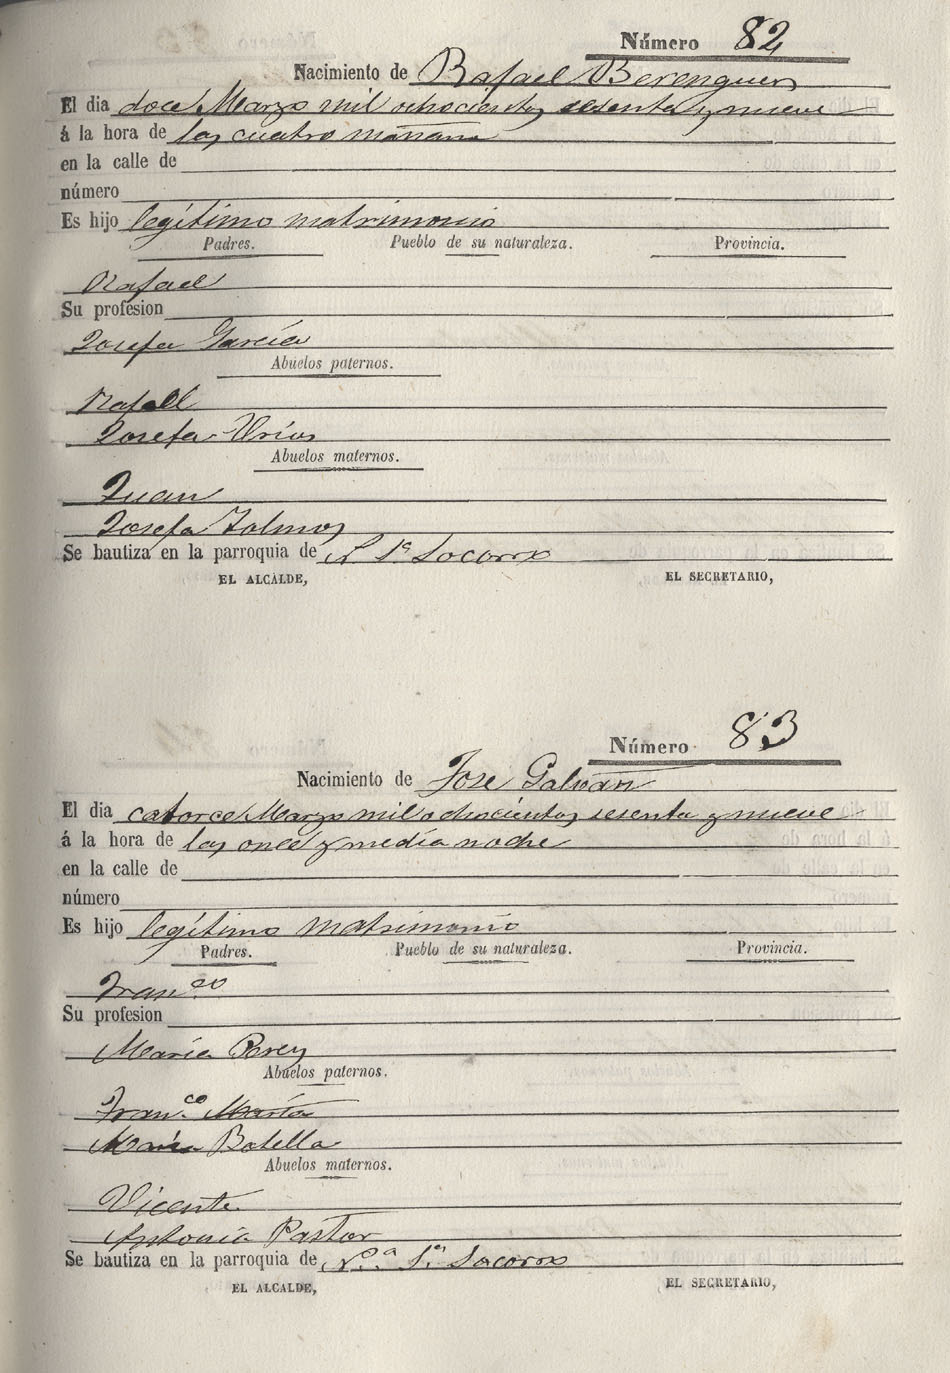 Número 82
Nacimiento de Rafael Berenguer
El dia doce Marzo mil ochocientos sesenta y nueve
á la hora de las cuatro mañana
en la calle de
número
Es hijo legítimo matrimonio
Padres. Pueblo de su naturaleza. Provincia.
Rafael
Su profesion
Josefa García
Abuelos paternos.
Rafael
Josefa Urios
Abuelos maternos.
Juan
Josefa
Se bautiza en la parroquia de Socorro
EL ALCALDE, EL SECRETARIO,
Número 83
Nacimiento de Jose Galvañ
El dia catorce Marzo mil ochocientos sesenta y nueve
á la hora de las once y media noche
en la calle de
número
Es hijo legítimo matrimonio
Padres. Pueblo de su naturaleza. Provincia.
Franco
Su profesion
María Perez
Abuelos paternos.
Fran.co María
María Botella
Abuelos maternos.
Vicente
Antonia Pastor
Se bautiza en la parroquia de N.a S.a Socorro
EL ALCALDE, EL SECRETARIO,